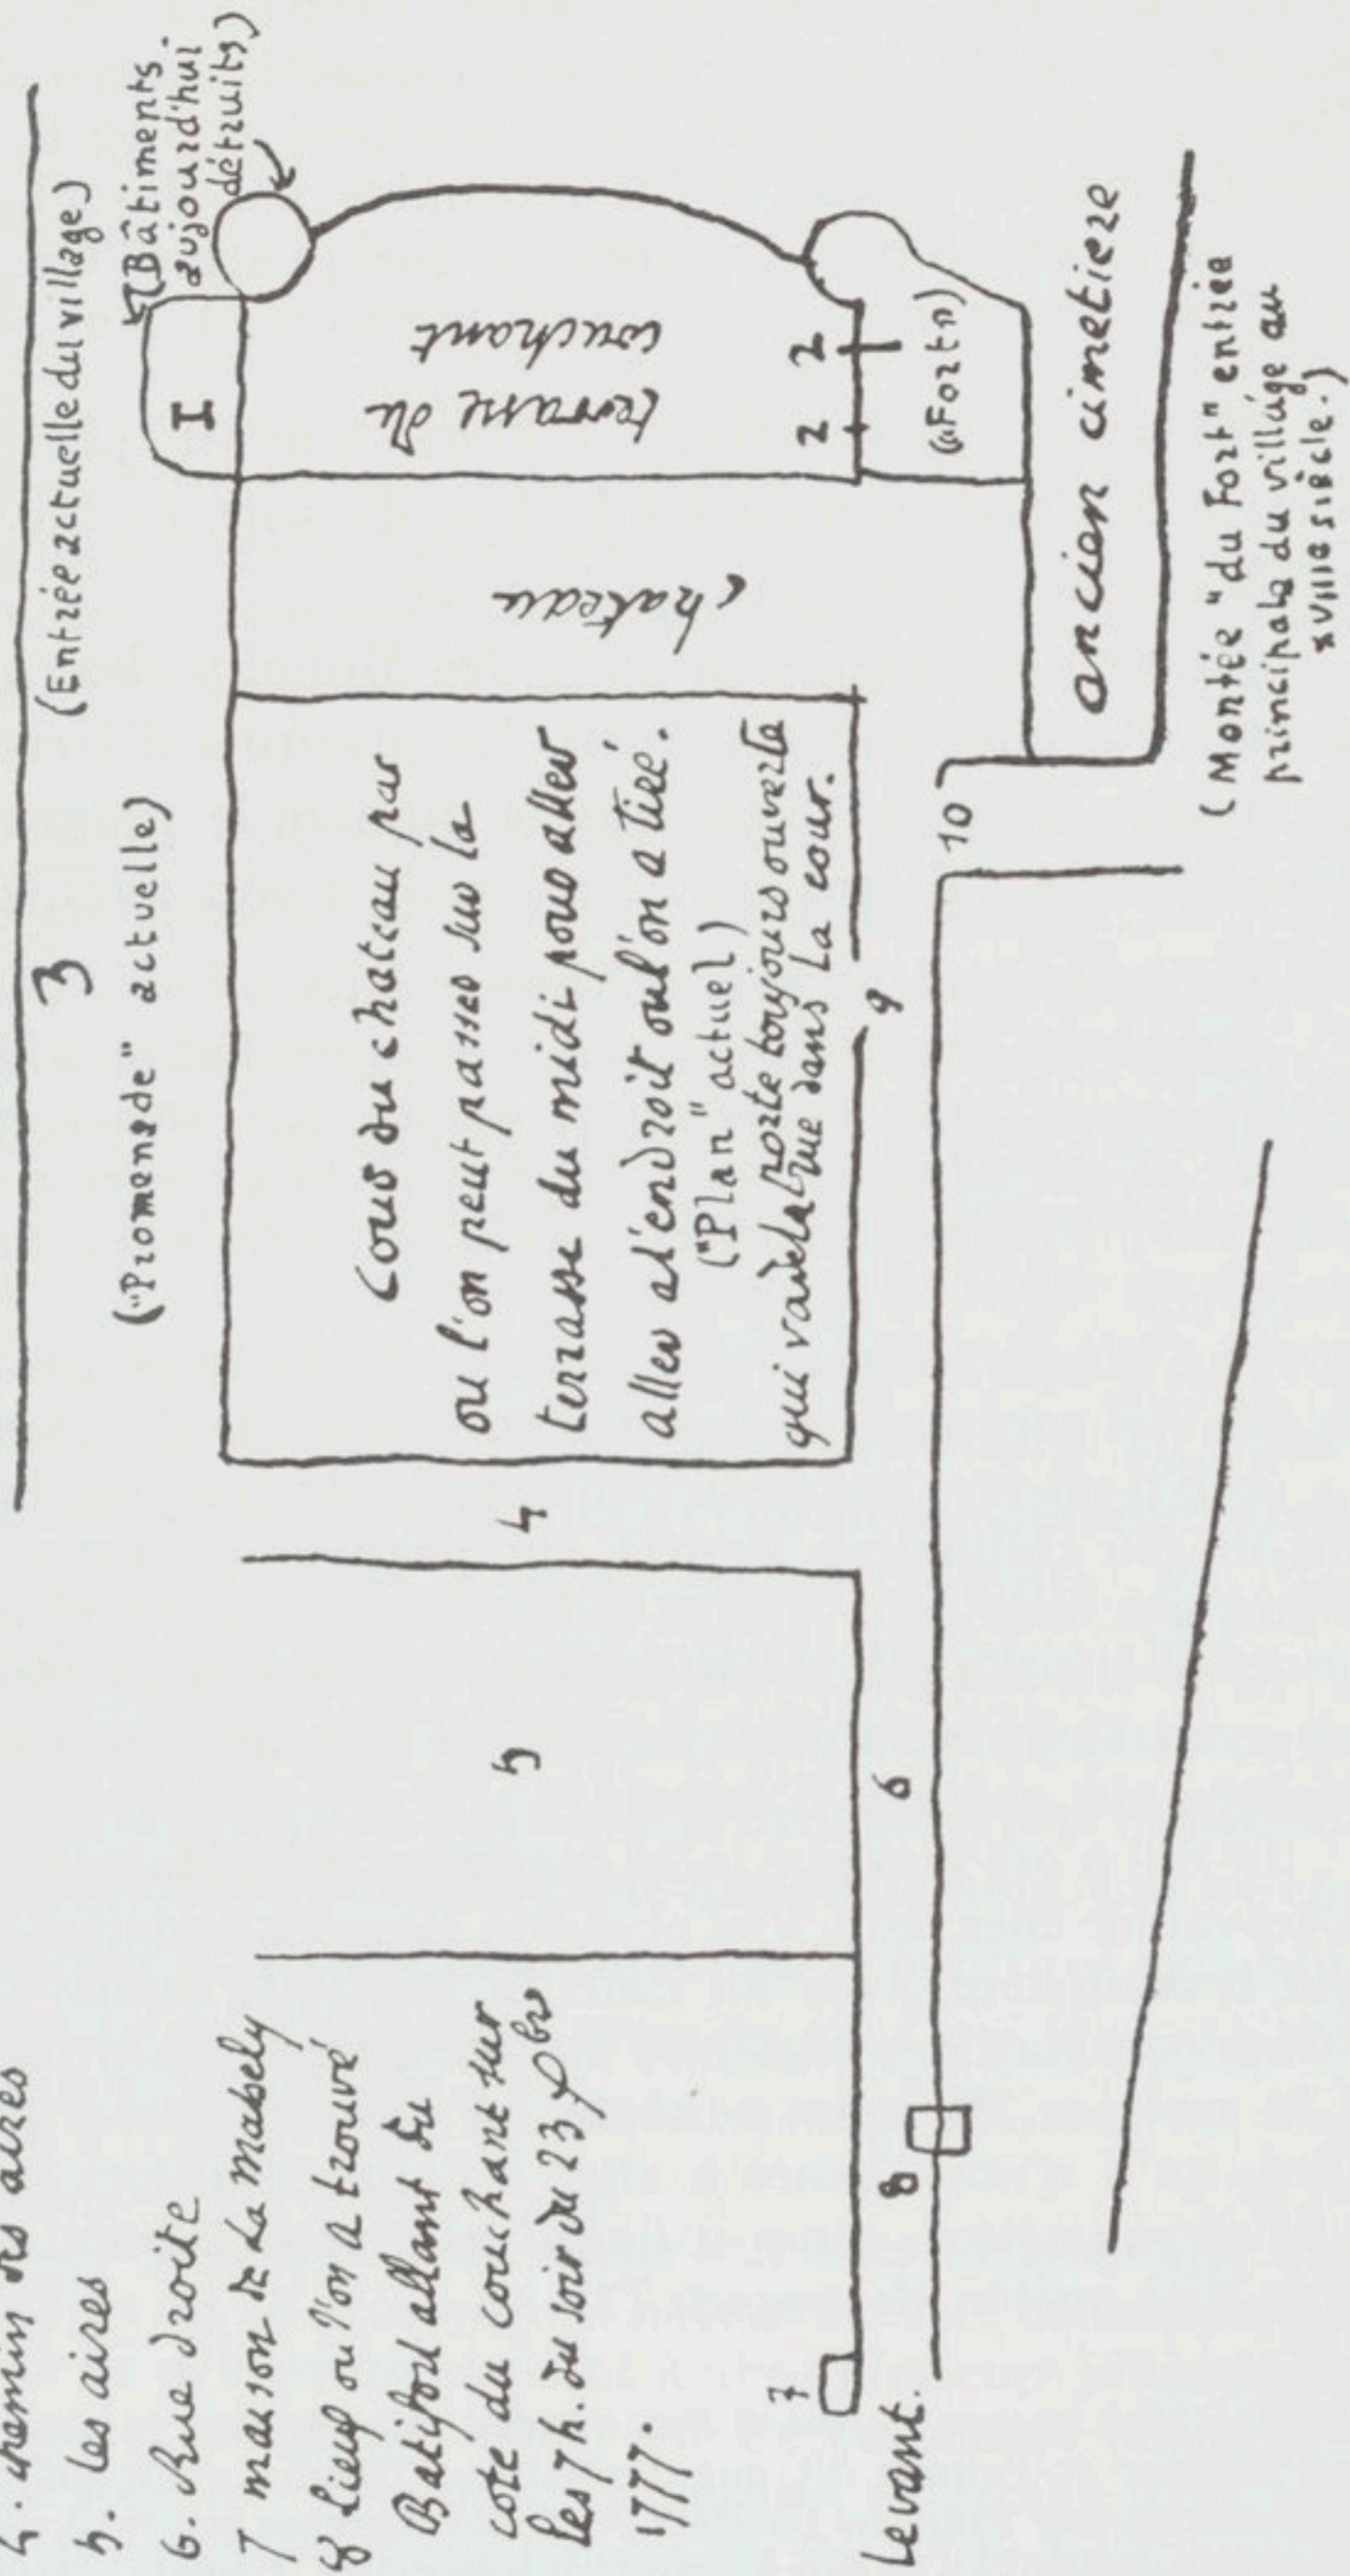 4. chemin des aires
5. les aires
6. Rue droite
7 maison de La Mabely
8 Lieu ou l'on a trouvé
Batifou allant du
coté du couchant sur
les 7 h. du soir du 23
1777.
3
(Entrée actuelle du village)
("Promenade" actuelle)
(Bâtiments
aujourd'hui
détruits)
I
terrasse du
couchant
2 2
("Fort")
chateau
Cour du chateau par
ou l'on peut passer sur la
terrasse du midi pour aller
aller a l'endroit ou l'on a tiré.
("Plan" actuel)
porte toujours ouverte
qui va de la rue dans la cour.
4
5
6
7
8
9
10
Levant.
ancien cimetiere
(Montée "du Fort" entrée
principale du village au
XVIIIe siècle.)